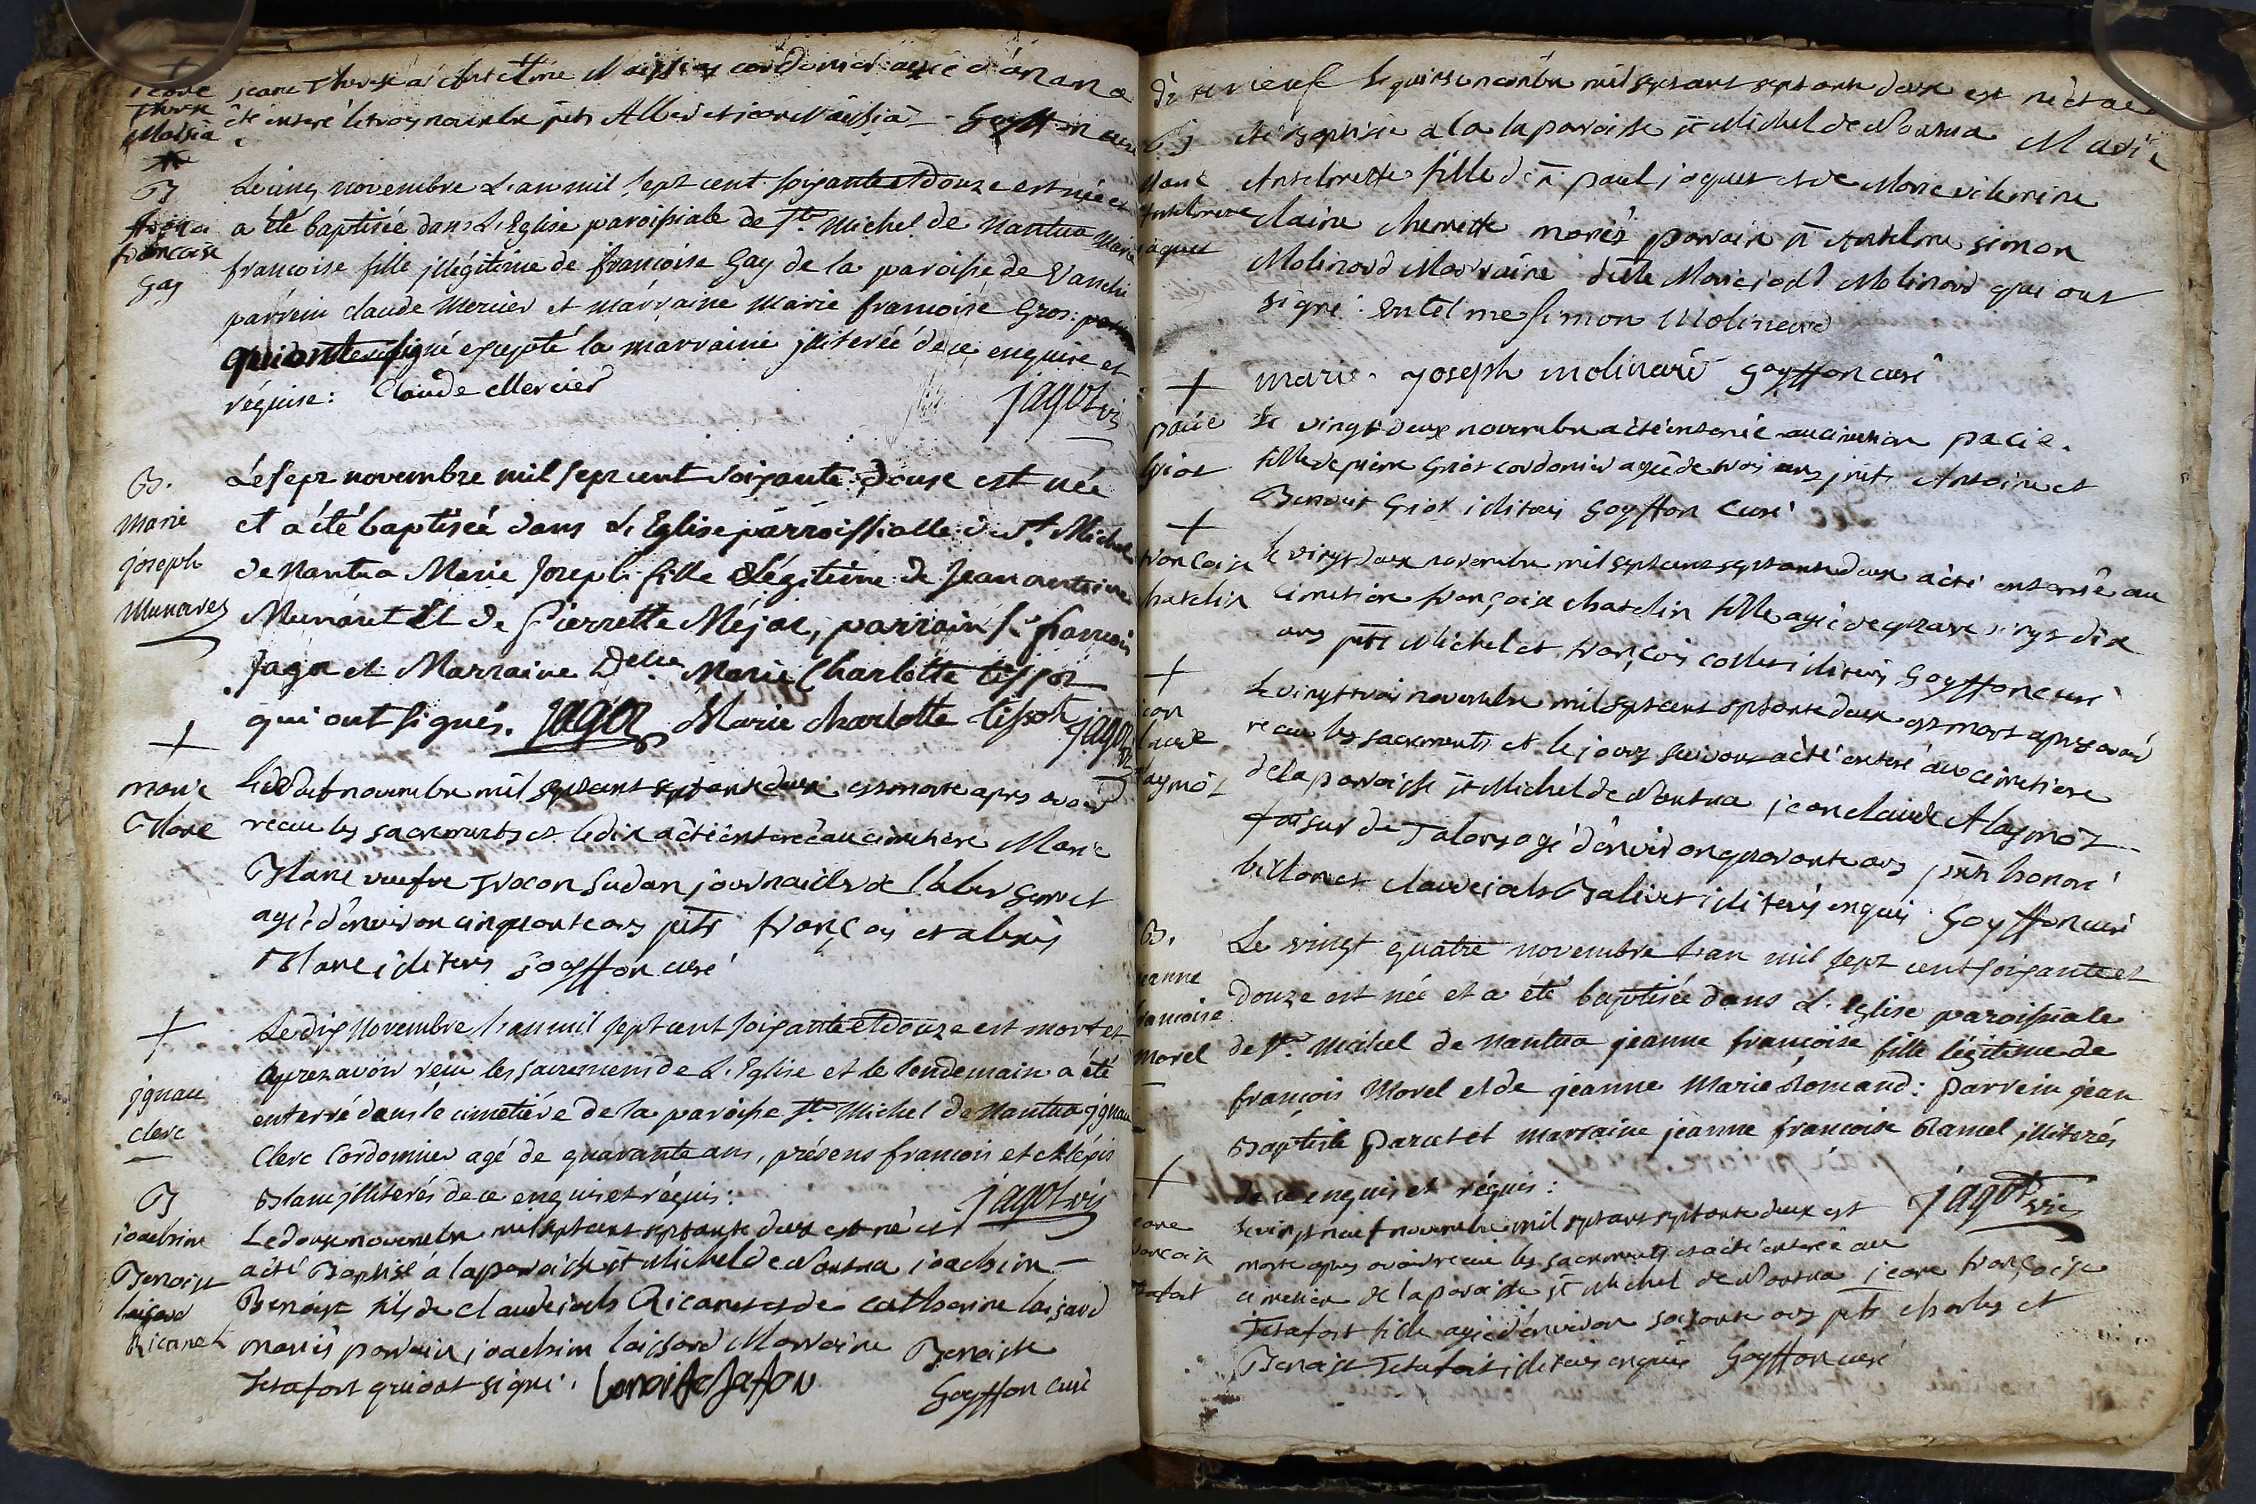 jeane Therese a Anselme cordonier agée d'un an a
été enteré le trois novembre pñts Goyffon curé
B
françoise
Gay
Le cinq novembre L'an mil sept cent soixante et douze est née et
a été baptisée dans L'Eglise paroissiale de St. Michel de Nantua Marie
francoise fille jllégitime de francoise Gay de la paroisse de
parrein claude Mercier et marraine Marie francoise Gros:
qui ont signé excepté la marraine jlliterée de ce enquise et
réquise: Claude Mercier
jagot vic
B.
Marie
joseph
Munaret
Le sept novembre mil sept cent soixante Douze est née
et a été baptisée dans L'Eglise parroissialle de St. Michel
de Nantua Marie Joseph fille Légitime de Jean antoine
Munaret Et de Pierrette Méjat, parrain Sr francois
Jagot et Marraine Delle Marie Charlotte tissot
qui ont signés. jagot Marie charlotte tissot jagot vic
+
marie
Blanc
Le huit novembre mil septcent septante deux est morte apres avoir
recue les sacrements et le dix a été enterée au cimetiere Marie
Blanc veufve journailler de
agée d'environ cinquante ans pñts françois et alexis
Blanc iliterés Goyffon curé
+
jgnace
clerc
Le dix Novembre L'an mil sept cent soixante et douze est mort et
aprez avoir réçu les sacremens de L'Eglise et le lendemain a été
enterré dans le cimetiére de la paroisse St. Michel de Nantua jgnace
Clerc Cordonnier agé de quarante ans, présens francois et Aléxis
Blanc jlliterés de ce enquis et réquis: jagot vic
B
ioachim
Benoist
laisard
Ricanet
Le douze novembre mil septcent septante deux est né et
a été Baptisé a la paroisse st Michel de Nantua ioachim
Benoist fils de claude Ricanet et de catherine laisard
mariés parrain ioachim laissard Marraine Benoiste
Tetafort qui ont signé. Goyffon curé
dix neuf le quinse novembre mil septcent septante deux est né et a
B
Marie
Anselmette
jaquet
été baptisée a la paroisse st Michel de Nantua Marie
Anselmette fille de Sr paul jaquet et de Marie vilermine
claire mariés parrain Sr Anselme simon
Molinard Marraine delle Marie Molinard qui ont
signé: entel me simon Molinard
marie joseph molinard Goyffon curé
+
pacie
Griot
Le vingt deux novembre a été enterrée au cimetiere pacie
fille de pierre Griot cordonier agée de trois ans pñts Antoine et
Benoit Griot iliterés Goyffon curé
+
françoise
chatelin
le vingt deux novembre mil septcent septante deux a été enterrée au
cimetiere françoise chatelin fille agée de quatre vingt dix
ans pñts Michel et françois iliterés Goyffon curé
+
jean
claude
Alaymot
Le vingt trois novembre mil septcent septante deux est mort apres avoir
recue les sacrements et le jour suivant a été enteré au cimetiere
de la paroisse st Michel de Nantua jean claude Alaymot
de agé d'environ quarante ans pñts honoré
et claude iliterés enquis Goyffon curé
B.
jeanne
francoise
Morel
Le vingt quatre novembre L'an mil sept cent soixante et
douze est née et a été baptisée dans L'Eglise paroissiale
de St. Michel de Nantua jeanne françoise fille légitime de
françois Morel et de jeanne Marie Romand: parrein jean
Baptiste et marraine jeanne francoise jlliterés
de ce enquis et réquis: jagot vic
+
jeane
françoise
Tetafort
Le vingt neuf novembre mil septcent septante deux est
morte apres avoir recue les sacrements et a été enterée au
cimetiere de la paroisse st Michel de Nantua jeane françoise
Tetafort fille agée d'environ soixante ans pñts charles et
Benoist Tetafort iliterés enquis Goyffon curé